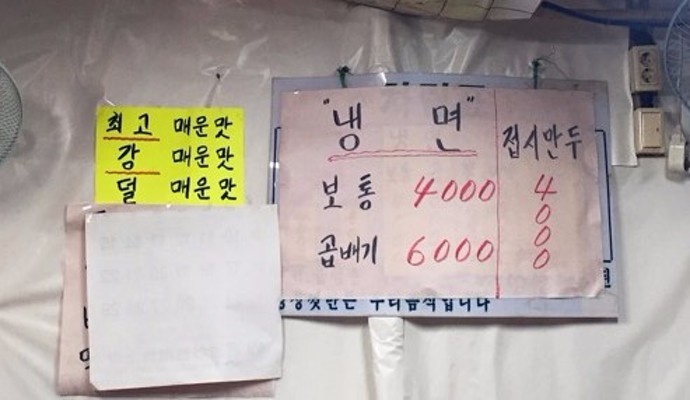 최고 매운맛
강 매운맛
덜 매운맛
"냉 면"
보통 4000
곱배기 6000
접시만두
4
0
0
0
우리음식입니다